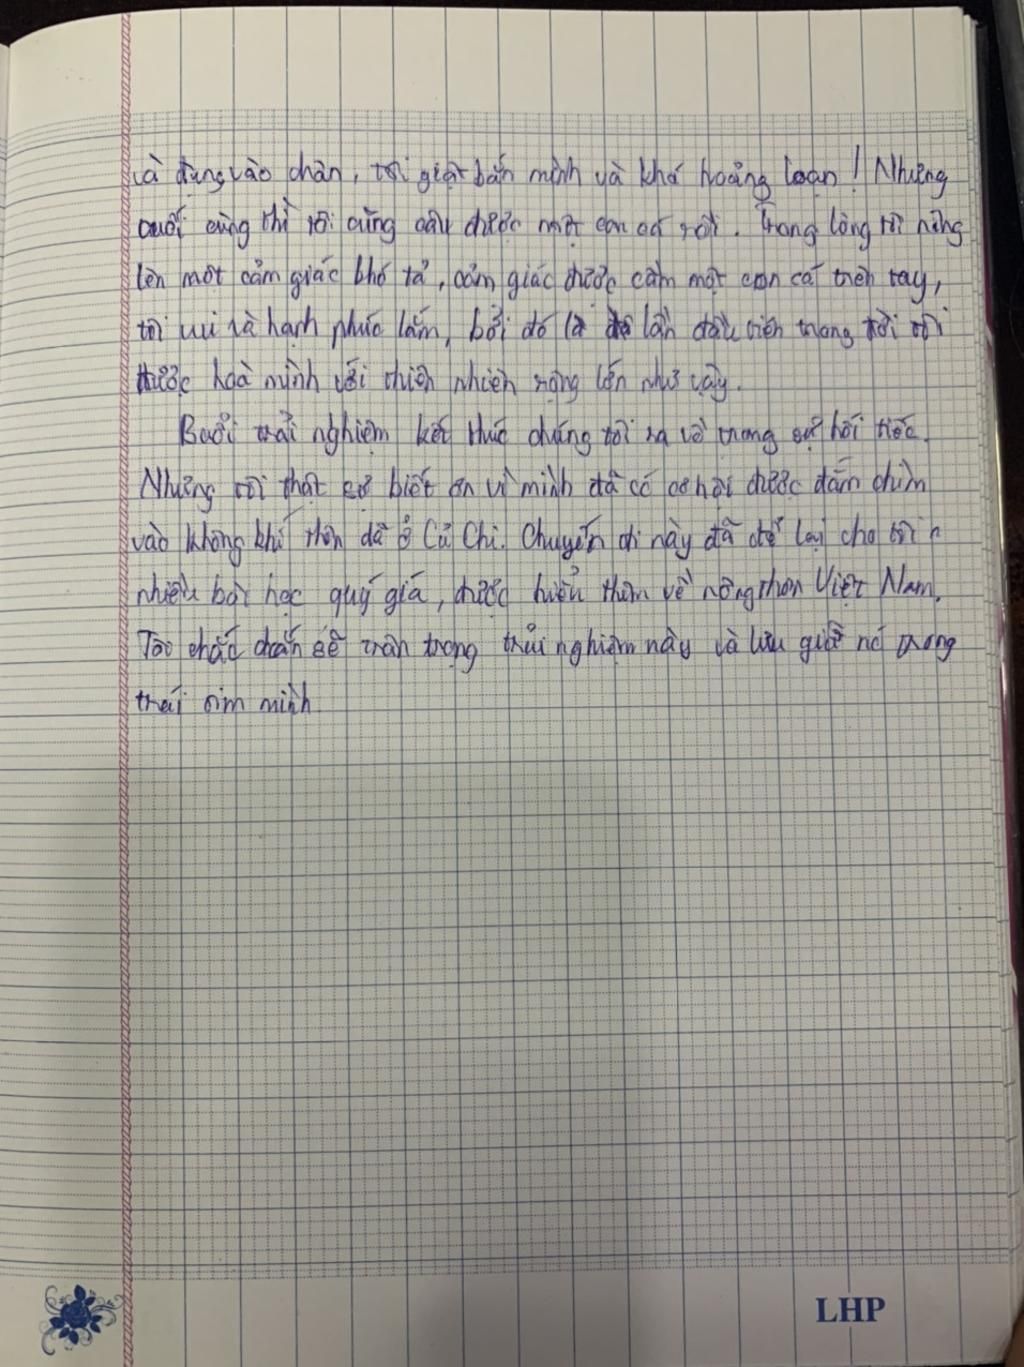 và đụng vào chân, tôi giật bắn mình và khá hoảng loạn! Nhưng
cuối cùng thì tôi cũng câu được một con cá rồi. Trong lòng tôi nâng
lên một cảm giác khó tả, cảm giác được cầm một con cá trên tay,
tôi vui và hạnh phúc lắm, bởi đó là lần đầu tiên trong đời tôi
được hoà mình với thiên nhiên rộng lớn như vậy.
Buổi trải nghiệm kết thúc chúng tôi ra về trong sự hối tiếc.
Nhưng tôi thật sự biết ơn vì mình đã có cơ hội được đắm chìm
vào không khí thôn dã ở Củ Chi. Chuyến đi này đã để lại cho tôi
nhiều bài học quý giá, được hiểu thêm về nông thôn Việt Nam.
Tôi chắc chắn sẽ trân trọng trải nghiệm này và lưu giữ nó trong
trái tim mình
LHP